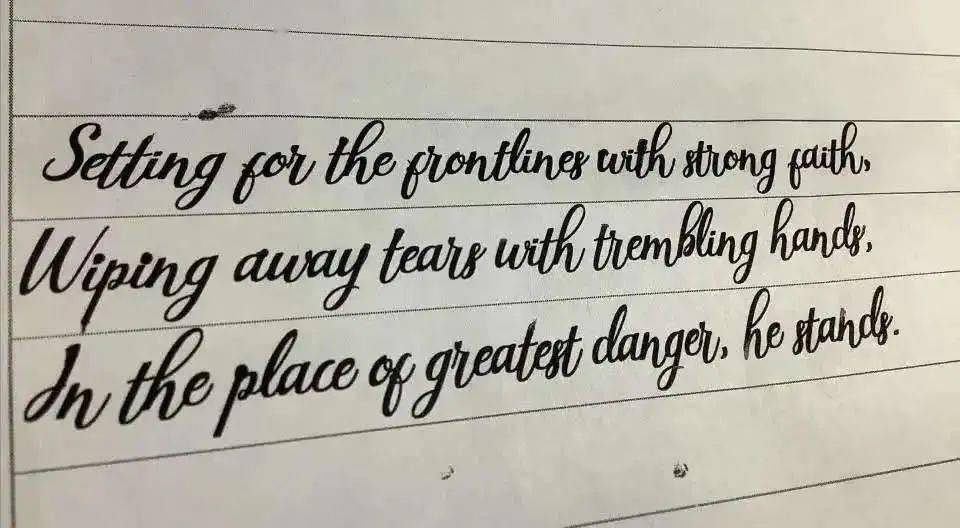 Setting for the frontlines with strong faith,
Wiping away tears with trembling hands,
In the place of greatest danger, he stands.